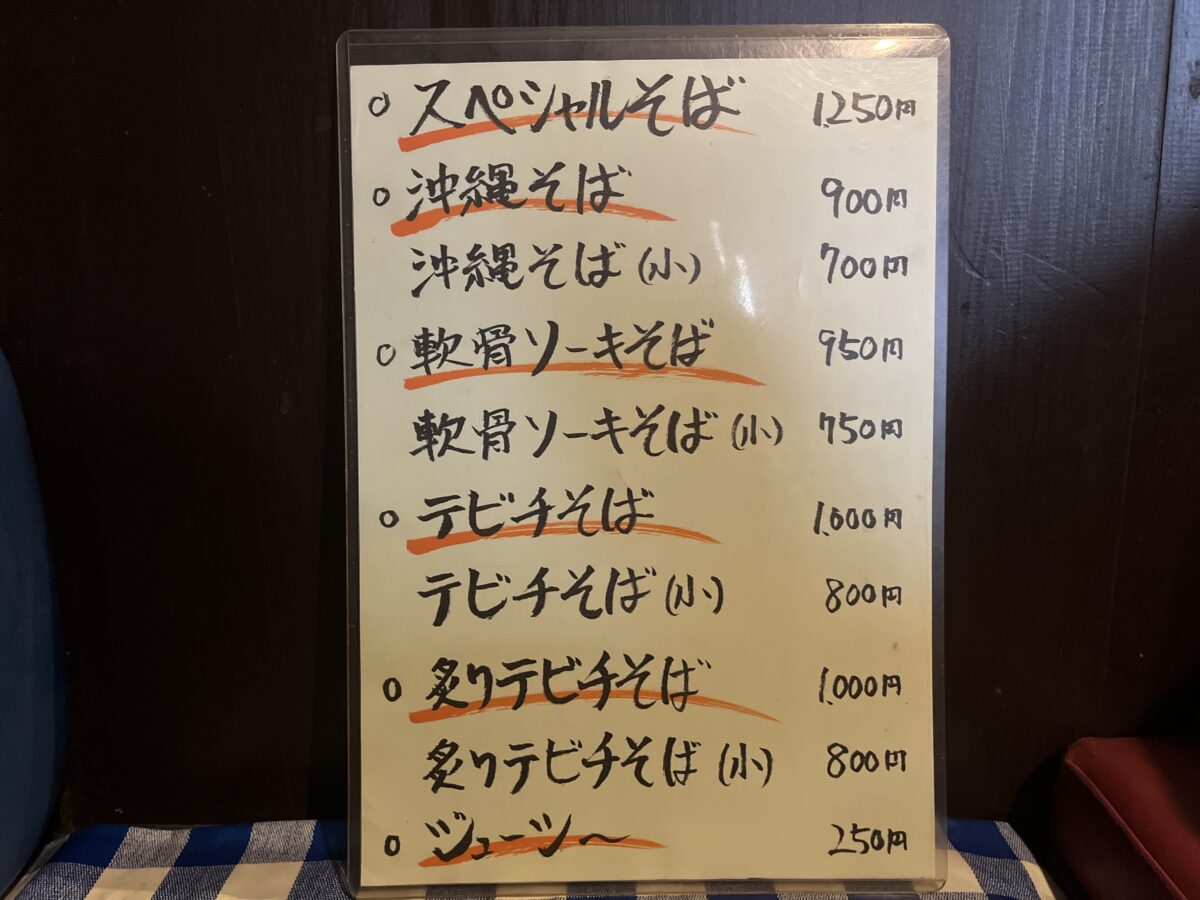 ○ スペシャルそば 1,250円
○ 沖縄そば 900円
沖縄そば(小) 700円
○ 軟骨ソーキそば 950円
軟骨ソーキそば(小) 750円
○ テビチそば 1,000円
テビチそば(小) 800円
○ 炙りテビチそば 1,000円
炙りテビチそば(小) 800円
○ ジューシ〜 250円